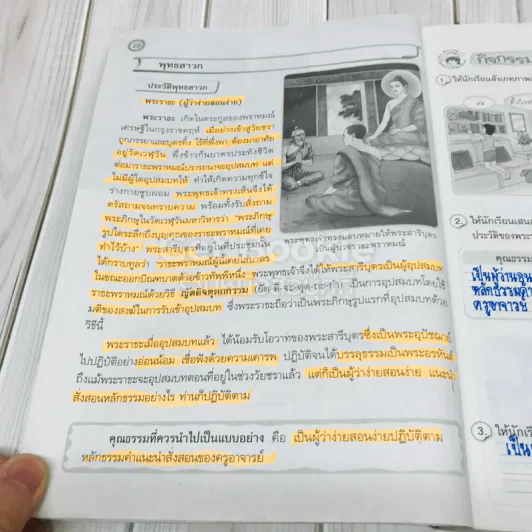 พุทธสาวก
ประวัติพุทธสาวก
พระราธะ (ผู้ว่าง่ายสอนง่าย)
พระราธะ เกิดในตระกูลของพราหมณ์
เศรษฐีในกรุงราชคฤห์ เมื่อย่างเข้าสู่วัยชรา
ถูกภรรยาและบุตรทิ้ง ไร้ที่พึ่งพา ต้องมาอาศัย
อยู่วัดเวฬุวัน พึ่งข้าวก้นบาตรประทังชีวิต
ต่อมาราธะพราหมณ์ปรารถนาจะอุปสมบท แต่
ไม่มีผู้ใดอุปสมบทให้ ทำให้เกิดความทุกข์ใจ
ร่างกายซูบผอม พระพุทธเจ้าทรงเห็นจึงได้
ตรัสถามจนทราบความ พร้อมทั้งรับสั่งถาม
พระภิกษุในวัดเวฬุวันมหาวิหารว่า "พระภิกษุ
รูปใดระลึกถึงบุญคุณของราธพราหมณ์ที่เคย
ทำไว้บ้าง" พระสารีบุตรที่อยู่ในที่ประชุมนั้น
ได้กราบทูลว่า ราธะพราหมณ์ผู้นี้เคยใส่บาตร
ในขณะออกบิณฑบาตด้วยข้าวทัพพีหนึ่ง พระพุทธเจ้าจึงได้ให้พระสารีบุตรเป็นผู้อุปสมบท
ราธะพราหมณ์ด้วยวิธี ญัตติจตุตถกรรม (ยัด-ติ-จะ-ตุด-ถะ-กำ) เป็นการอุปสมบทโดยใช้
มติของสงฆ์ในการรับเข้าอุปสมบท ซึ่งพระราธะถือว่าเป็นพระภิกษุรูปแรกที่อุปสมบทด้วย
วิธีนี้
พระราธะเมื่ออุปสมบทแล้ว ได้น้อมรับโอวาทของพระสารีบุตรซึ่งเป็นพระอุปัชฌาย์
ไปปฏิบัติอย่างอ่อนน้อม เชื่อฟังด้วยความเคารพ ปฏิบัติจนได้บรรลุธรรมเป็นพระอรหันต์
ถึงแม้พระราธะจะอุปสมบทตอนที่อยู่ในช่วงวัยชราแล้ว แต่ก็เป็นผู้ว่าง่ายสอนง่าย แนะนำ
สั่งสอนหลักธรรมอย่างไร ท่านก็ปฏิบัติตาม
คุณธรรมที่ควรนำไปเป็นแบบอย่าง คือ เป็นผู้ว่าง่ายสอนง่ายปฏิบัติตาม
หลักธรรมคำแนะนำสั่งสอนของครูอาจารย์
พระพุทธเจ้าทรงมอบหมายให้พระสารีบุตร
เป็นผู้บวชราธะพราหมณ์
กิจกรรม
1. ให้นักเรียนสังเกตภาพ
2. ให้นักเรียนเสน
ประวัติของพระ
คุณธรรม
หลักธรรมคำ
ครูอาจารย์
3. ให้นักเรี
เป็น